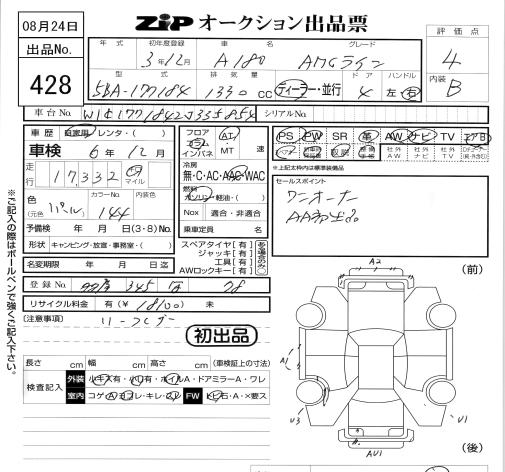 08月24日
出品No.
428
ZiP オークション出品票
評価点
4
内装
B
年式 初年度登録 車名 グレード
3年12月 A180 AMGライン
型式 排気量 ドア ハンドル
5BA-177184 1330 CC ディーラー・並行 4 左・右
車台No. W1K1771842J335854 シリアルNo.
車歴 自家用 レンタ・( )
車検 6年12月
走行 17,332 マイル
色 (元色 パール) カラーNo. 144 内装色
予備検 年 月 日(3・8)No.
形状 キャンピング・放宣・事務室・( )
名変期限 年 月 日迄
フロア コラム インパネ AT・ MT 速
冷房
無・C・AC・AAC・WAC
燃料
ガソリン・軽油・( )
Nox 適合・非適合
乗車定員 名
スペアタイヤ [有]
ジャッキ [有]
工具 [有]
AWロックキー [有]
PS PW SR 革 AW ナビ TV エアB
社外AW 社外ナビ 社外TV
※上記太枠内は標準装備品
セールスポイント
ワンオーナー
登録No. 345
リサイクル料金 有(¥18100) 未
(注意事項)
初出品
長さ cm 幅 cm 高さ cm (車検証上の寸法)
検査記入 外装 小キズ有・小凹有・ホイルA・ドアミラーA・ワレ
室内 FW
※ご記入の際はボールペンで強くご記入下さい。
A2
(前)
A1
U3
U1
AU1
(後)